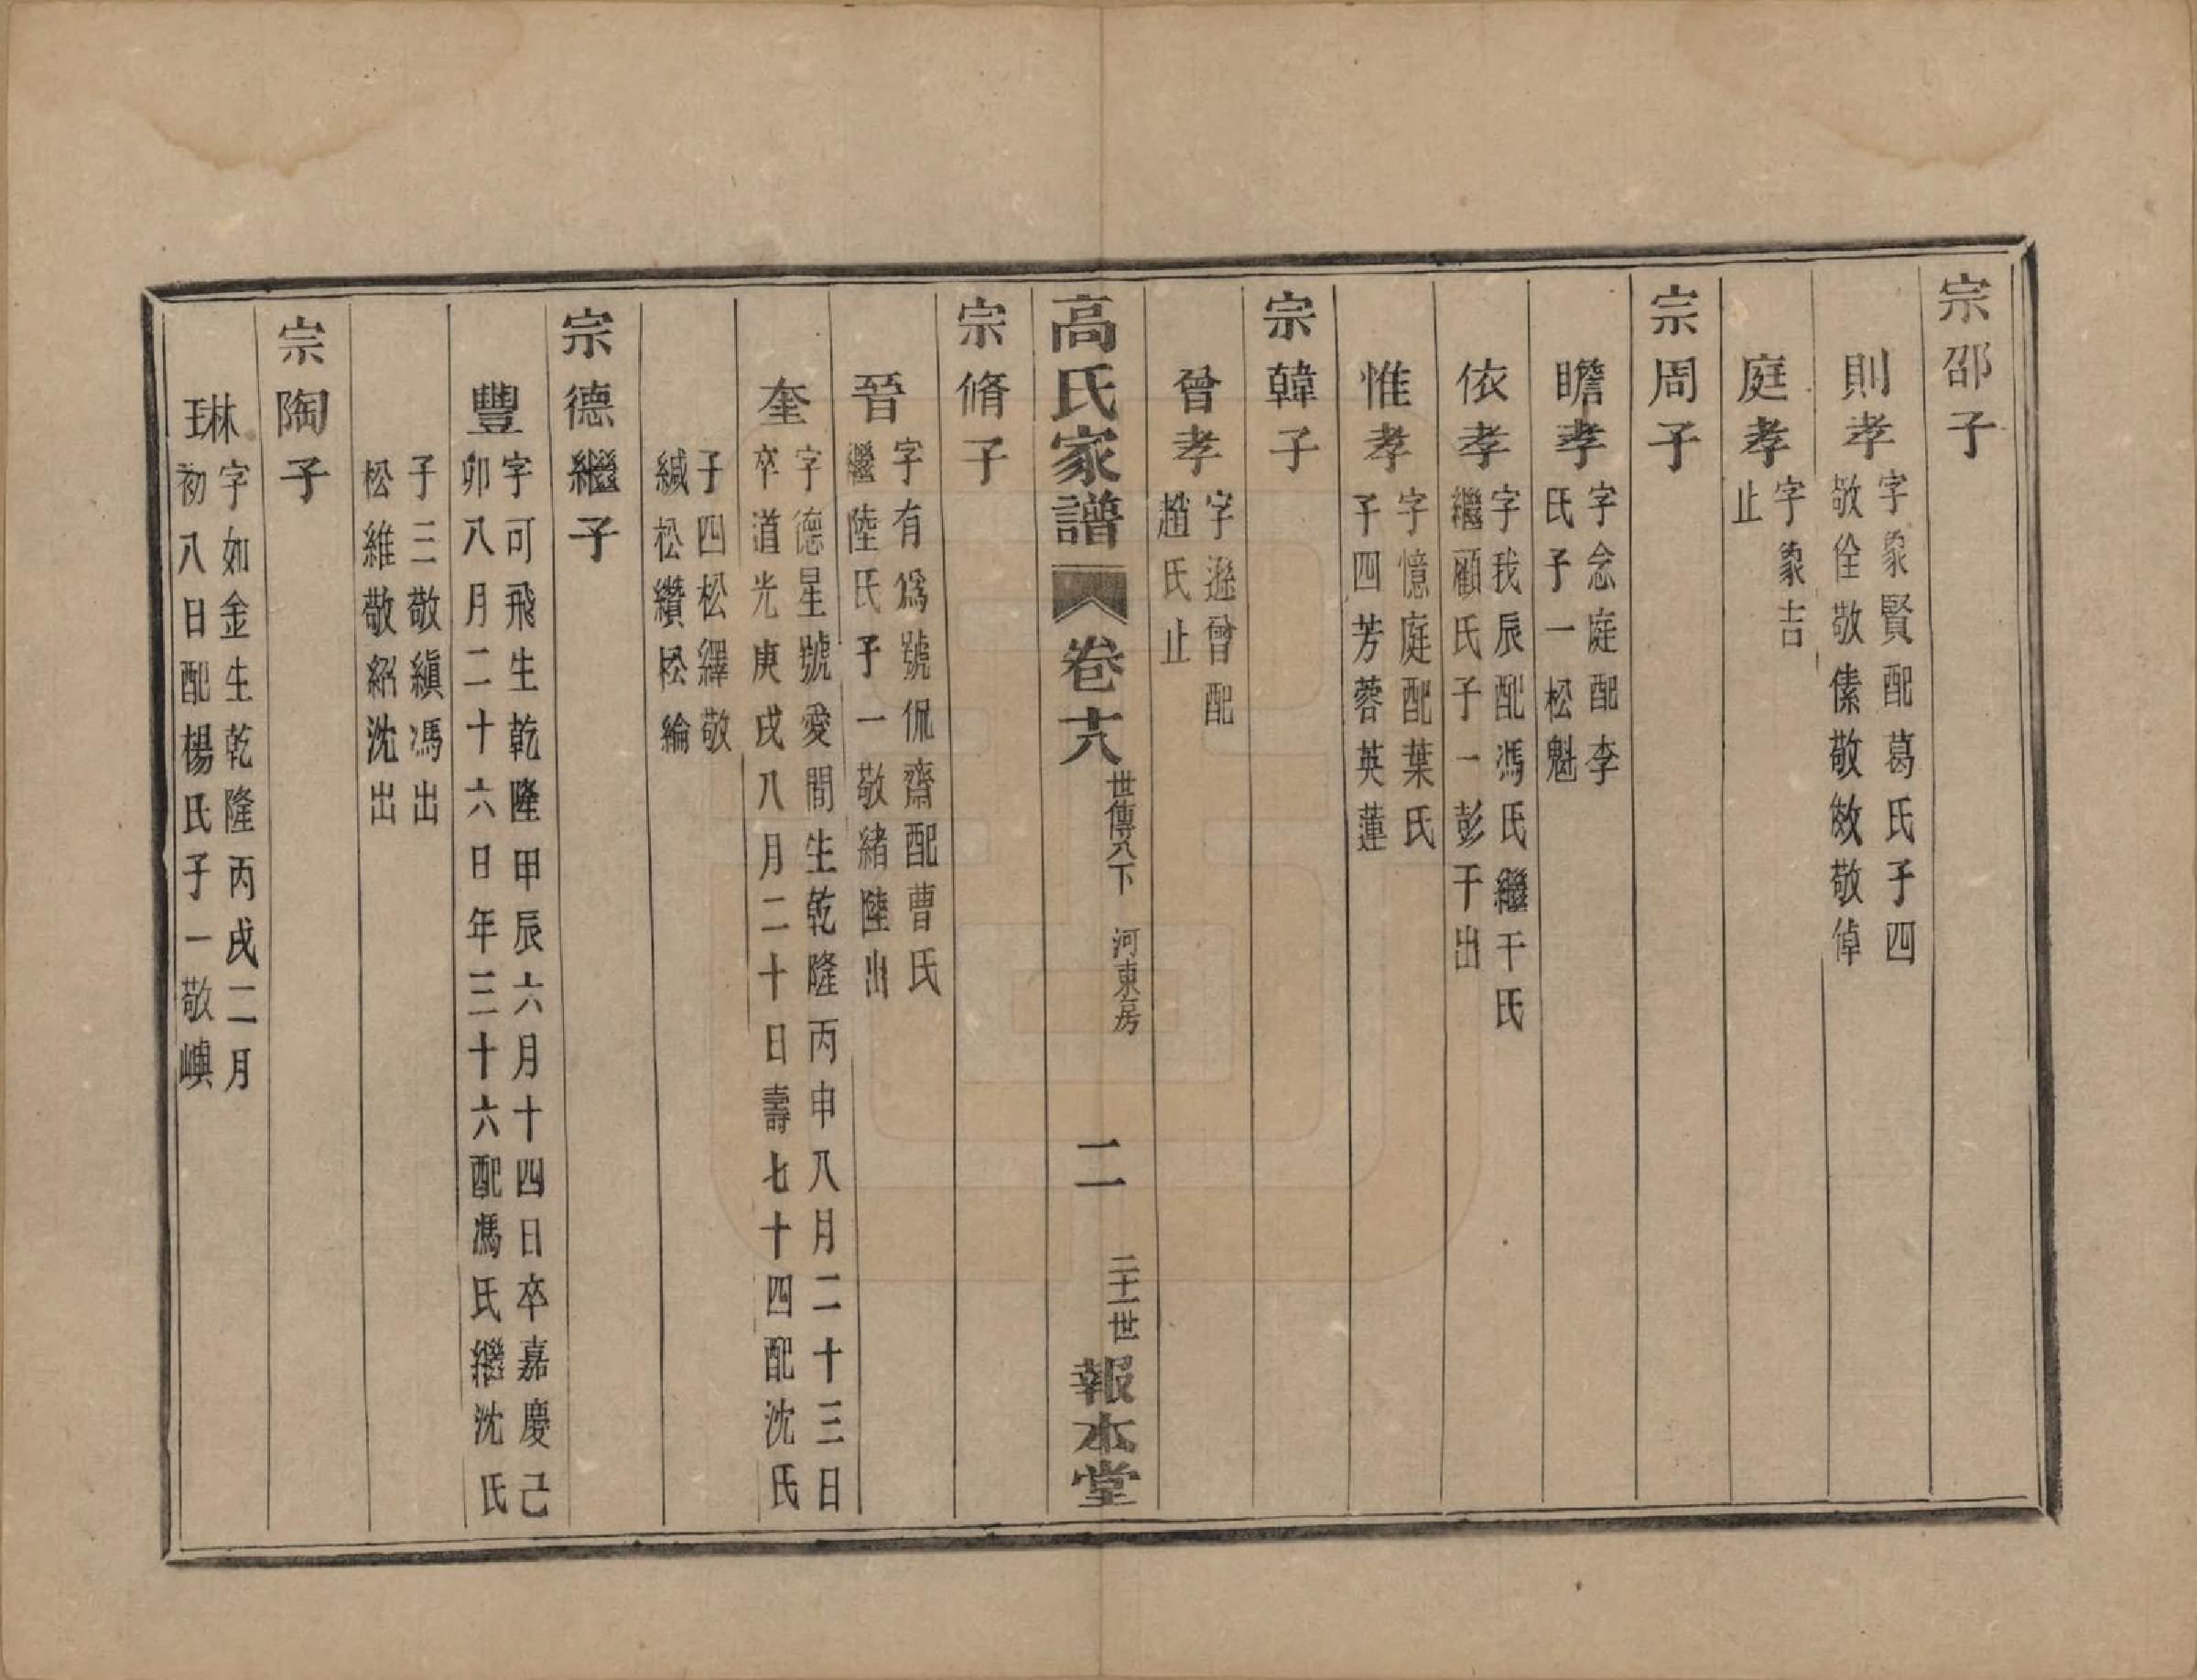 宗邵子
則孝
字象賢配葛氏子四
敬佺敬傃敬傚敬倬
庭孝
字象吉
止
宗周子
瞻孝
字念庭配李
氏子一松魁
依孝
字我辰配馮氏繼干氏
繼顧氏子一彭干出
惟孝
字憶庭配葉氏
子四芳蓉英蓮
宗韓子
曾孝
字遜曾配
趙氏止
高氏家譜
卷十八
世傳八下 河東房
二
二十一世
報本堂
宗脩子
晉
字有爲號侃齋配曹氏
繼陸氏子一敬緒陸出
奎
字德星號愛間生乾隆丙申八月二十三日
卒道光庚戌八月二十日壽七十四配沈氏
子四松繹敬
緘松纘松綸
宗德繼子
豐
字可飛生乾隆甲辰六月十四日卒嘉慶己
卯八月二十六日年三十六配馮氏繼沈氏
子三敬縝馮出
松維敬紹沈出
宗陶子
琳
字如金生乾隆丙戌二月
初八日配楊氏子一敬嶼